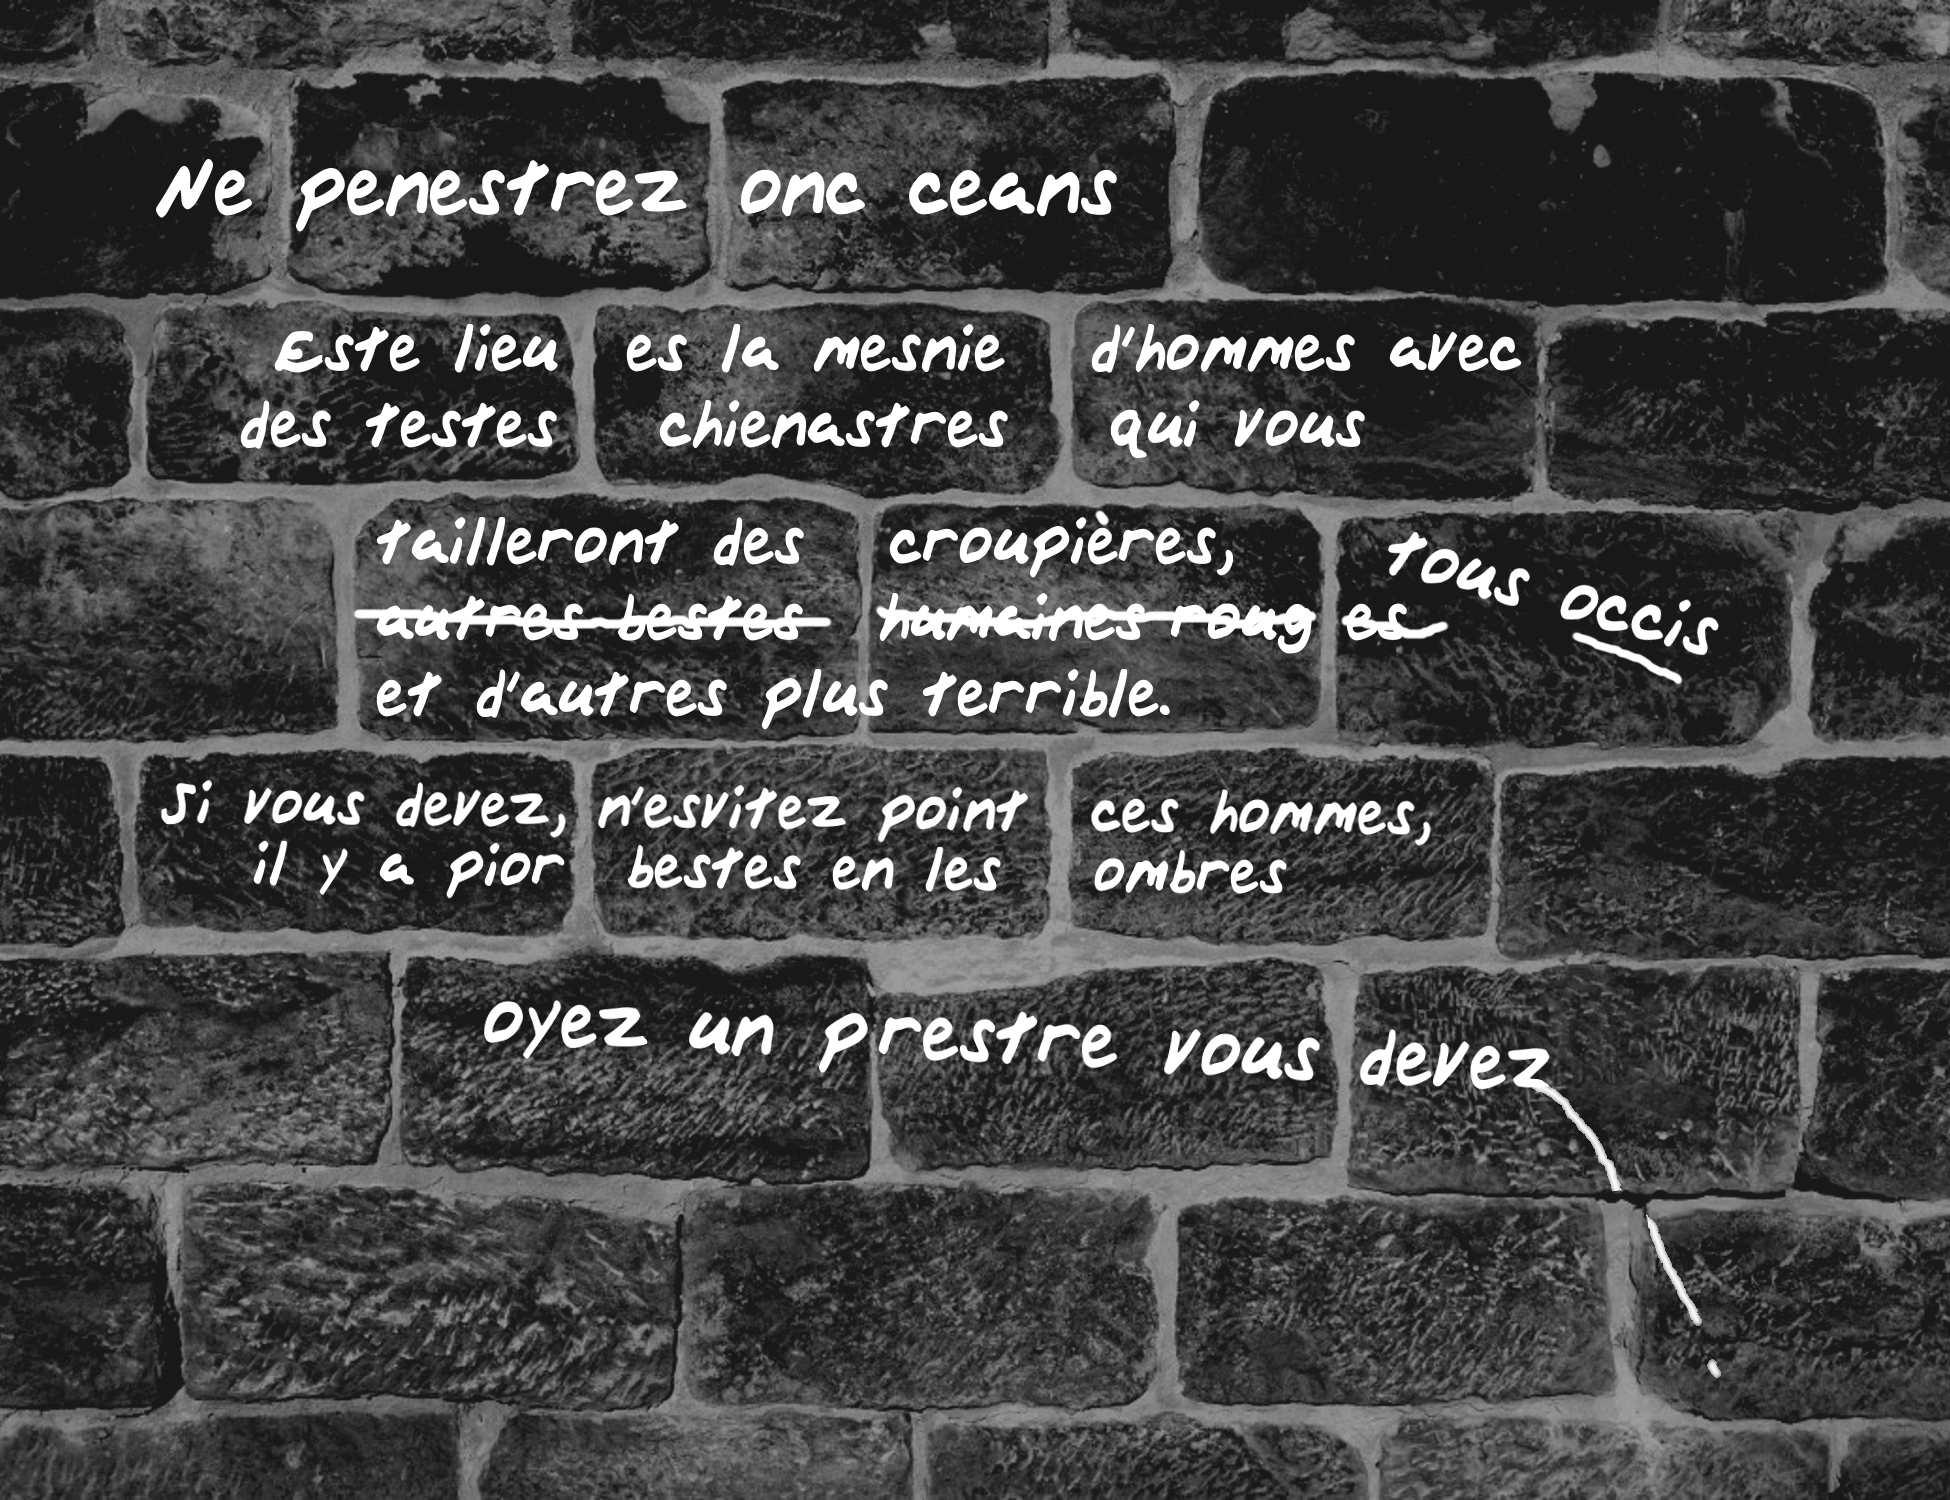 Ne penestrez onc ceans
Este lieu es la mesnie d'hommes avec
des testes chienastres qui vous
tailleront des croupières,
autres bestes humaines rouges
tous occis
et d'autres plus terrible.
Si vous devez, n'esvitez point ces hommes,
il y a pior bestes en les ombres
Oyez un prestre vous devez